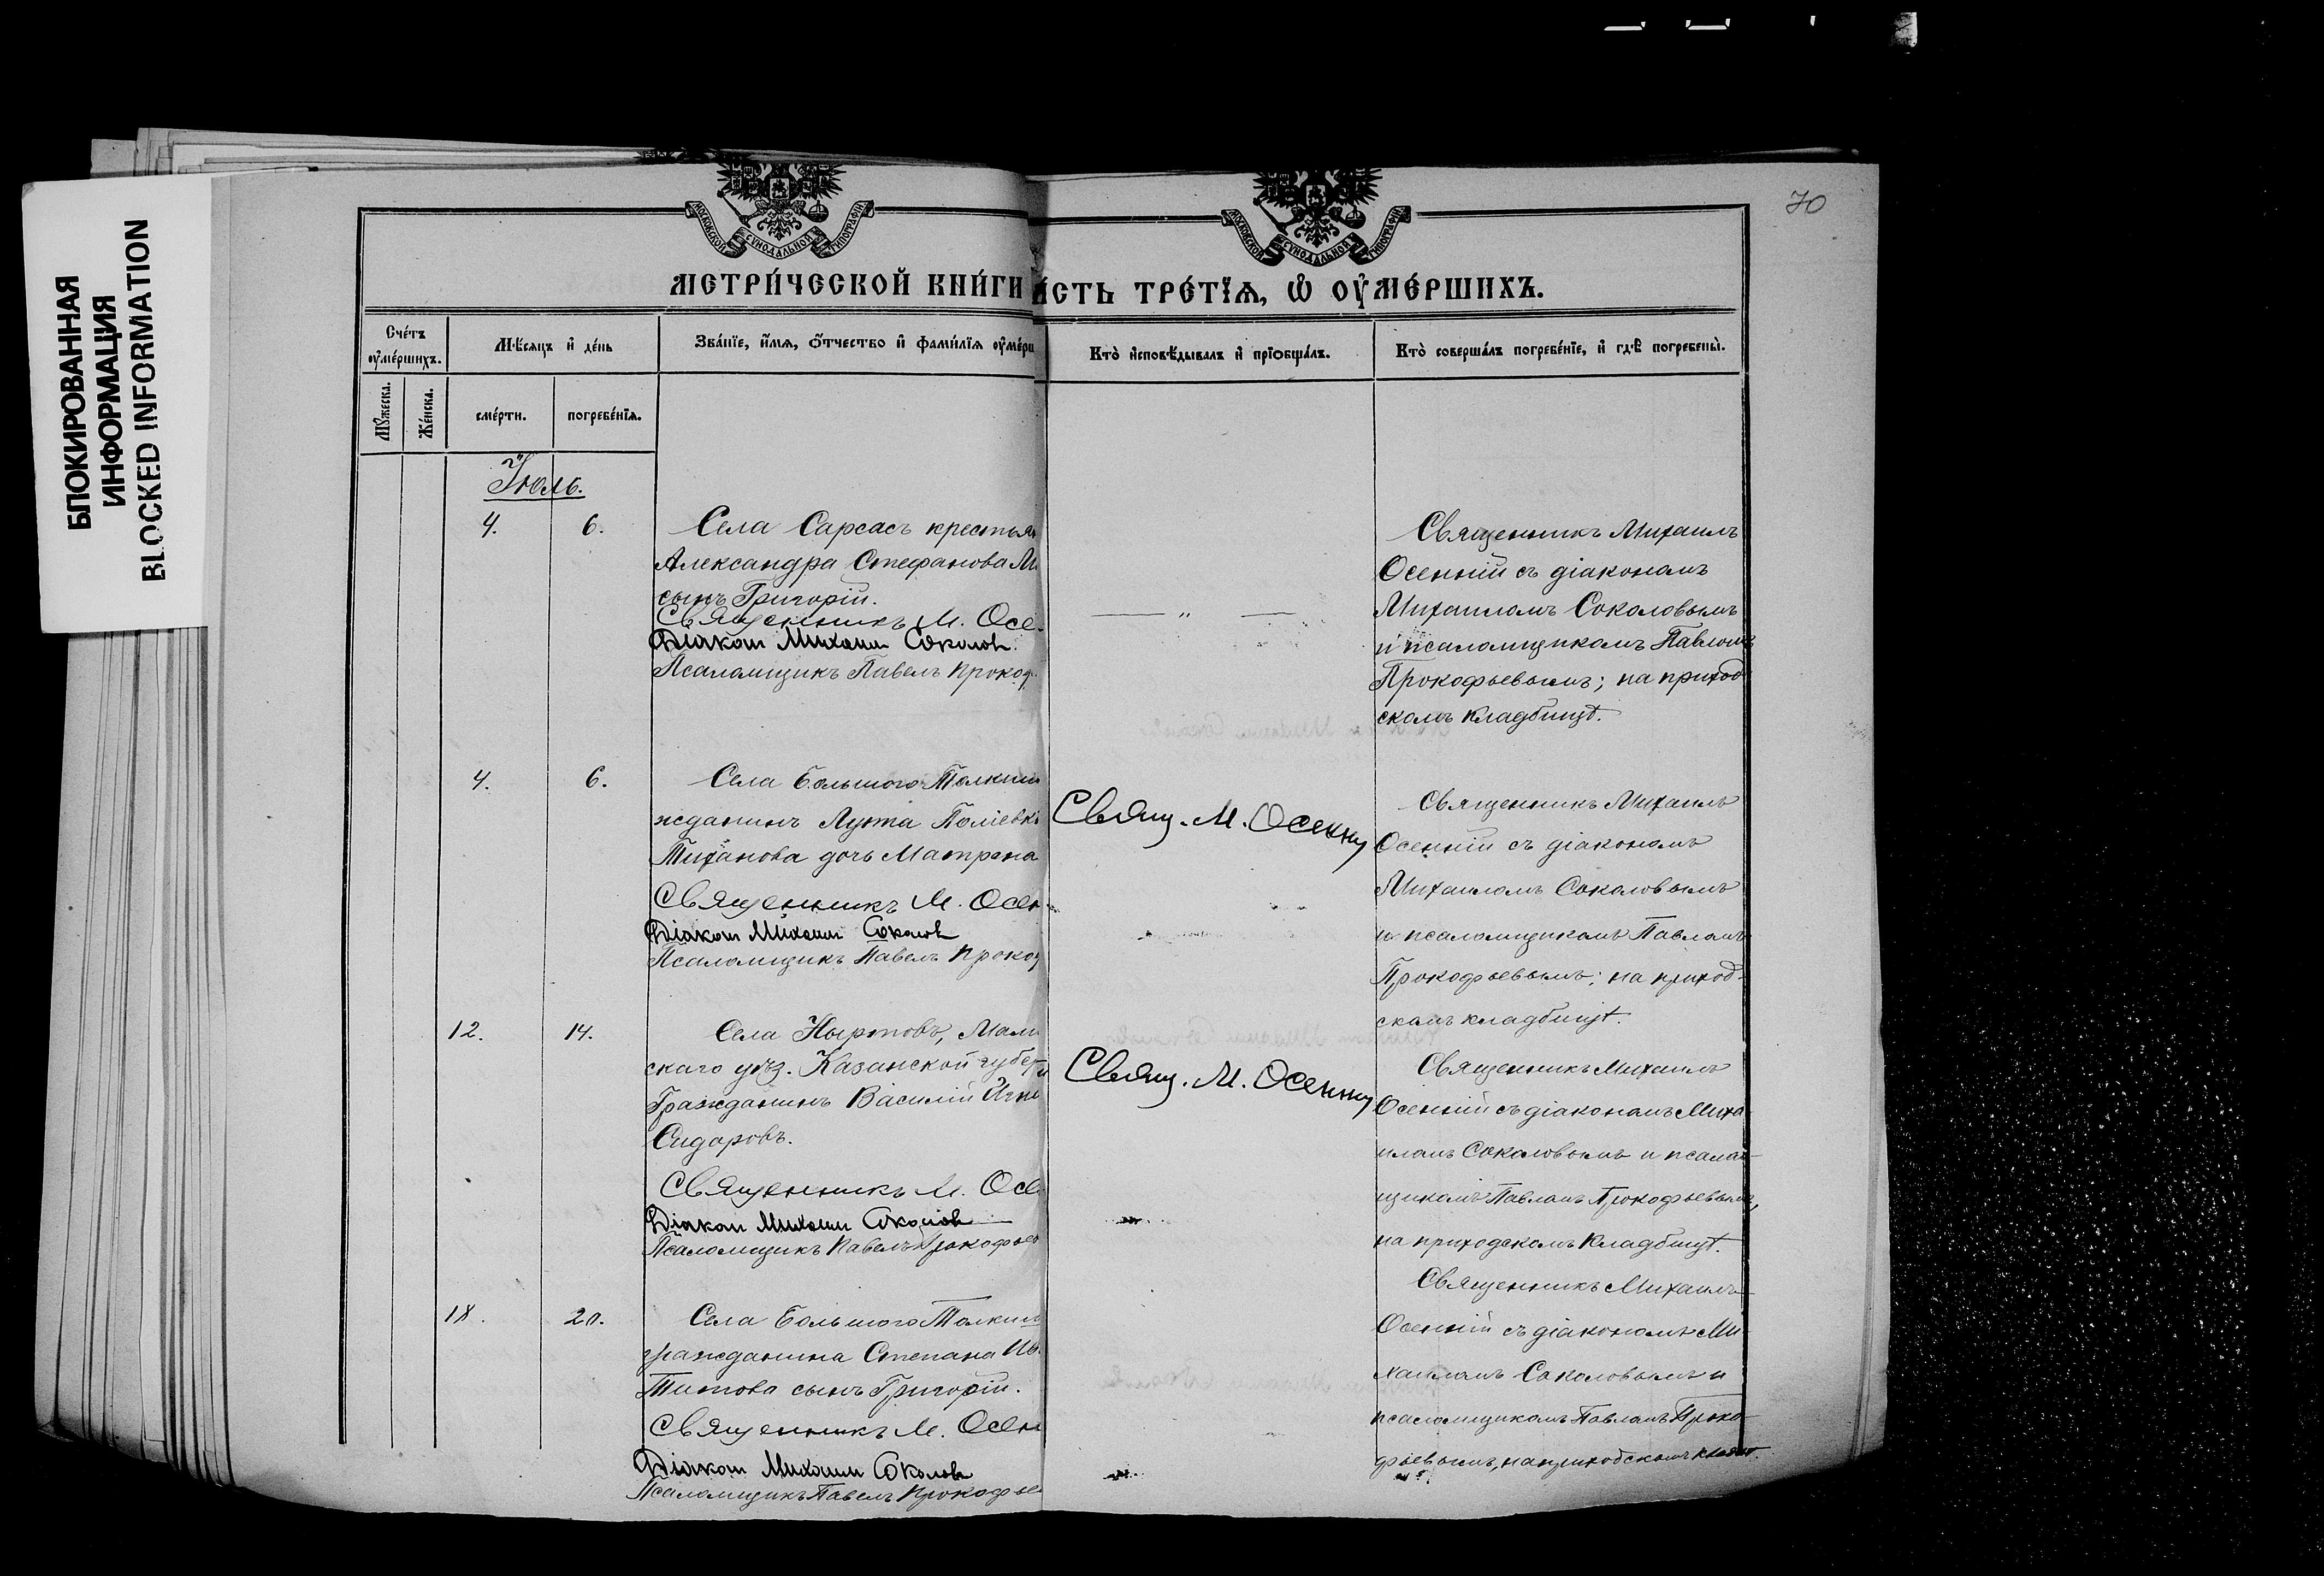 БЛОКИРОВАННАЯ
ИНФОРМАЦИЯ
BLOCKED INFORMATION
70
МОСКОВСКОЙ СУНОДАЛЬНОЙ ТИПОГРАФІИ
МОСКОВСКОЙ СУНОДАЛЬНОЙ ТИПОГРАФІИ
МЕТРИ́ЧЕСКОЙ КНИ́ГИ
ИСТЬ ТРЕ́ТІѦ, Ѡ ОУМЕ́РШИХЪ.
Счетъ оумершихъ.
Мѣсяцъ и день
Званіе, имя, отчество и фамилія оумерш
Кто исповѣдывалъ и пріобщалъ.
Кто совершалъ погребеніе, и гдѣ погребены.
Мужеска.
Женска.
смерти.
погребенія.
Іюль.
4.
6.
Села Сарсасъ крестьян
Александра Стефанова Ми
сынъ Григорій.
Священникъ М. Осе
Діакон Михаил Соколов.
Псаломщикъ Павелъ Прокоф
— „ —
Священникъ Михаилъ
Осенній съ діакономъ
Михаиломъ Соколовымъ
и псаломщикомъ Павломъ
Прокофьевымъ; на приход
скомъ кладбищѣ.
4.
6.
Села Большого Толкиш
жданинъ Лу
Тиханова дочь Матрена
Священникъ М. Осен
Діакон Михаил Соколов
Псаломщикъ Павелъ Прокоф
Свящ. М. Осенни
Священникъ Михаилъ
Осенній съ діакономъ
Михаиломъ Соколовымъ
и псаломщикомъ Павломъ
Прокофьевымъ; на приход-
скомъ кладбищѣ.
12.
14.
Села Ныртовъ, Мам
скаго уѣз. Казанской губер
Гражданинъ Василій Игна
Сидоровъ.
Священникъ М. Осе
Діакон Михаил Соколов
Псаломщикъ Павелъ Прокофье
Свящ. М. Осенни
Священникъ Михаилъ
Осенній съ діакономъ Миха
иломъ Соколовымъ и псалом-
щикомъ Павломъ Прокофьевымъ,
на приходскомъ кладбищѣ.
18.
20.
Села Большого Толкиш
гражданина Степана Ив
Титова сынъ Григорій.
Священникъ М. Осен
Діакон Михаил Соколов
Псаломщикъ Павелъ Прокофье
Священникъ Михаилъ
Осенній съ діакономъ Ми-
хаиломъ Соколовымъ и
псаломщикомъ Павломъ Проко-
фьевымъ, на приходскомъ кладб.